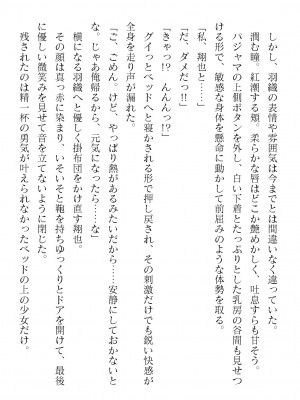 しかし、羽織の表情や雰囲気は今までとは明らかに違っていた。
潤む瞳。紅潮する頬。柔らかな唇はどこか艶めかしく、吐息すらも甘そう。
パジャマの上側ボタンを外し、白い下着とたっぷりとした乳房の谷間も見せつ
ける形で、敏感な身体を懸命に動かして前屈みのような体勢を取る。
「私、翔也と……」
「だ、ダメだっ!!」
「きゃっ!? んんんっ!?」
グイっとベッドへと寝かされる形で押し戻され、その刺激だけでも鋭い快感が
全身を走り声が漏れた。
「ご、ごめん。けど、やっぱり熱があるみたいだから……安静にしておかないと
な。じゃあ俺帰るから、元気になったら……な」
横になる羽織へと優しく掛布団をかけ直す翔也。
その顔は真っ赤に染まり、いそいそと鞄を持ちゆっくりとドアを開けて、最後
に優しい微笑みを見せて音を立てないように閉じた。
残されたのは精一杯の勇気が叶えられなかったベッドの上の少女だけ。